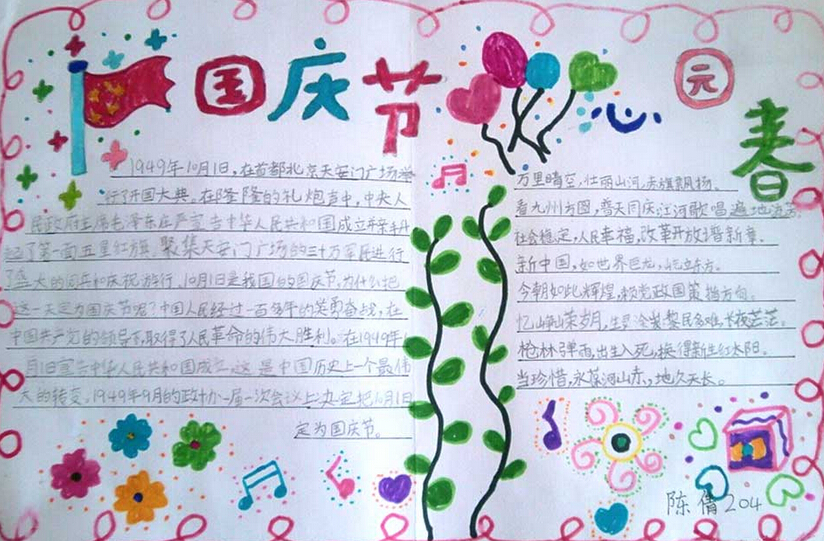 国庆节
1949年10月1日，在首都北京天安门广场举
行了开国大典。在隆隆的礼炮声中，中央人
民政府主席毛泽东庄严宣告中华人民共和国成立并亲手升
起了第一面五星红旗。聚集天安门广场的三十万军民进行
了盛大的阅兵和庆祝游行。10月1日是我国的国庆节，为什么把
这一天定为国庆节呢？中国人民经过一百多年的英勇奋战，在
中国共产党的领导下，取得了人民革命的伟大胜利。在1949年
月1日宣告中华人民共和国成立，这是中国历史上一个最伟
大的转变。1949年9月的政协一届一次会议上决定把10月1日
定为国庆节。
心园春
万里晴空，壮丽山河，赤旗飘扬。
看九州方圆，普天同庆江河歌唱遍地流芳
社会稳定，人民幸福，改革开放谱新章。
新中国，如世界巨龙，屹立东方。
今朝如此辉煌，赖党政国策指方向。
忆峥嵘岁月，生灵涂炭黎民多难，长夜茫茫。
枪林弹雨，出生入死，换得新生红太阳。
当珍惜，永葆河山赤，地久天长。
陈倩204